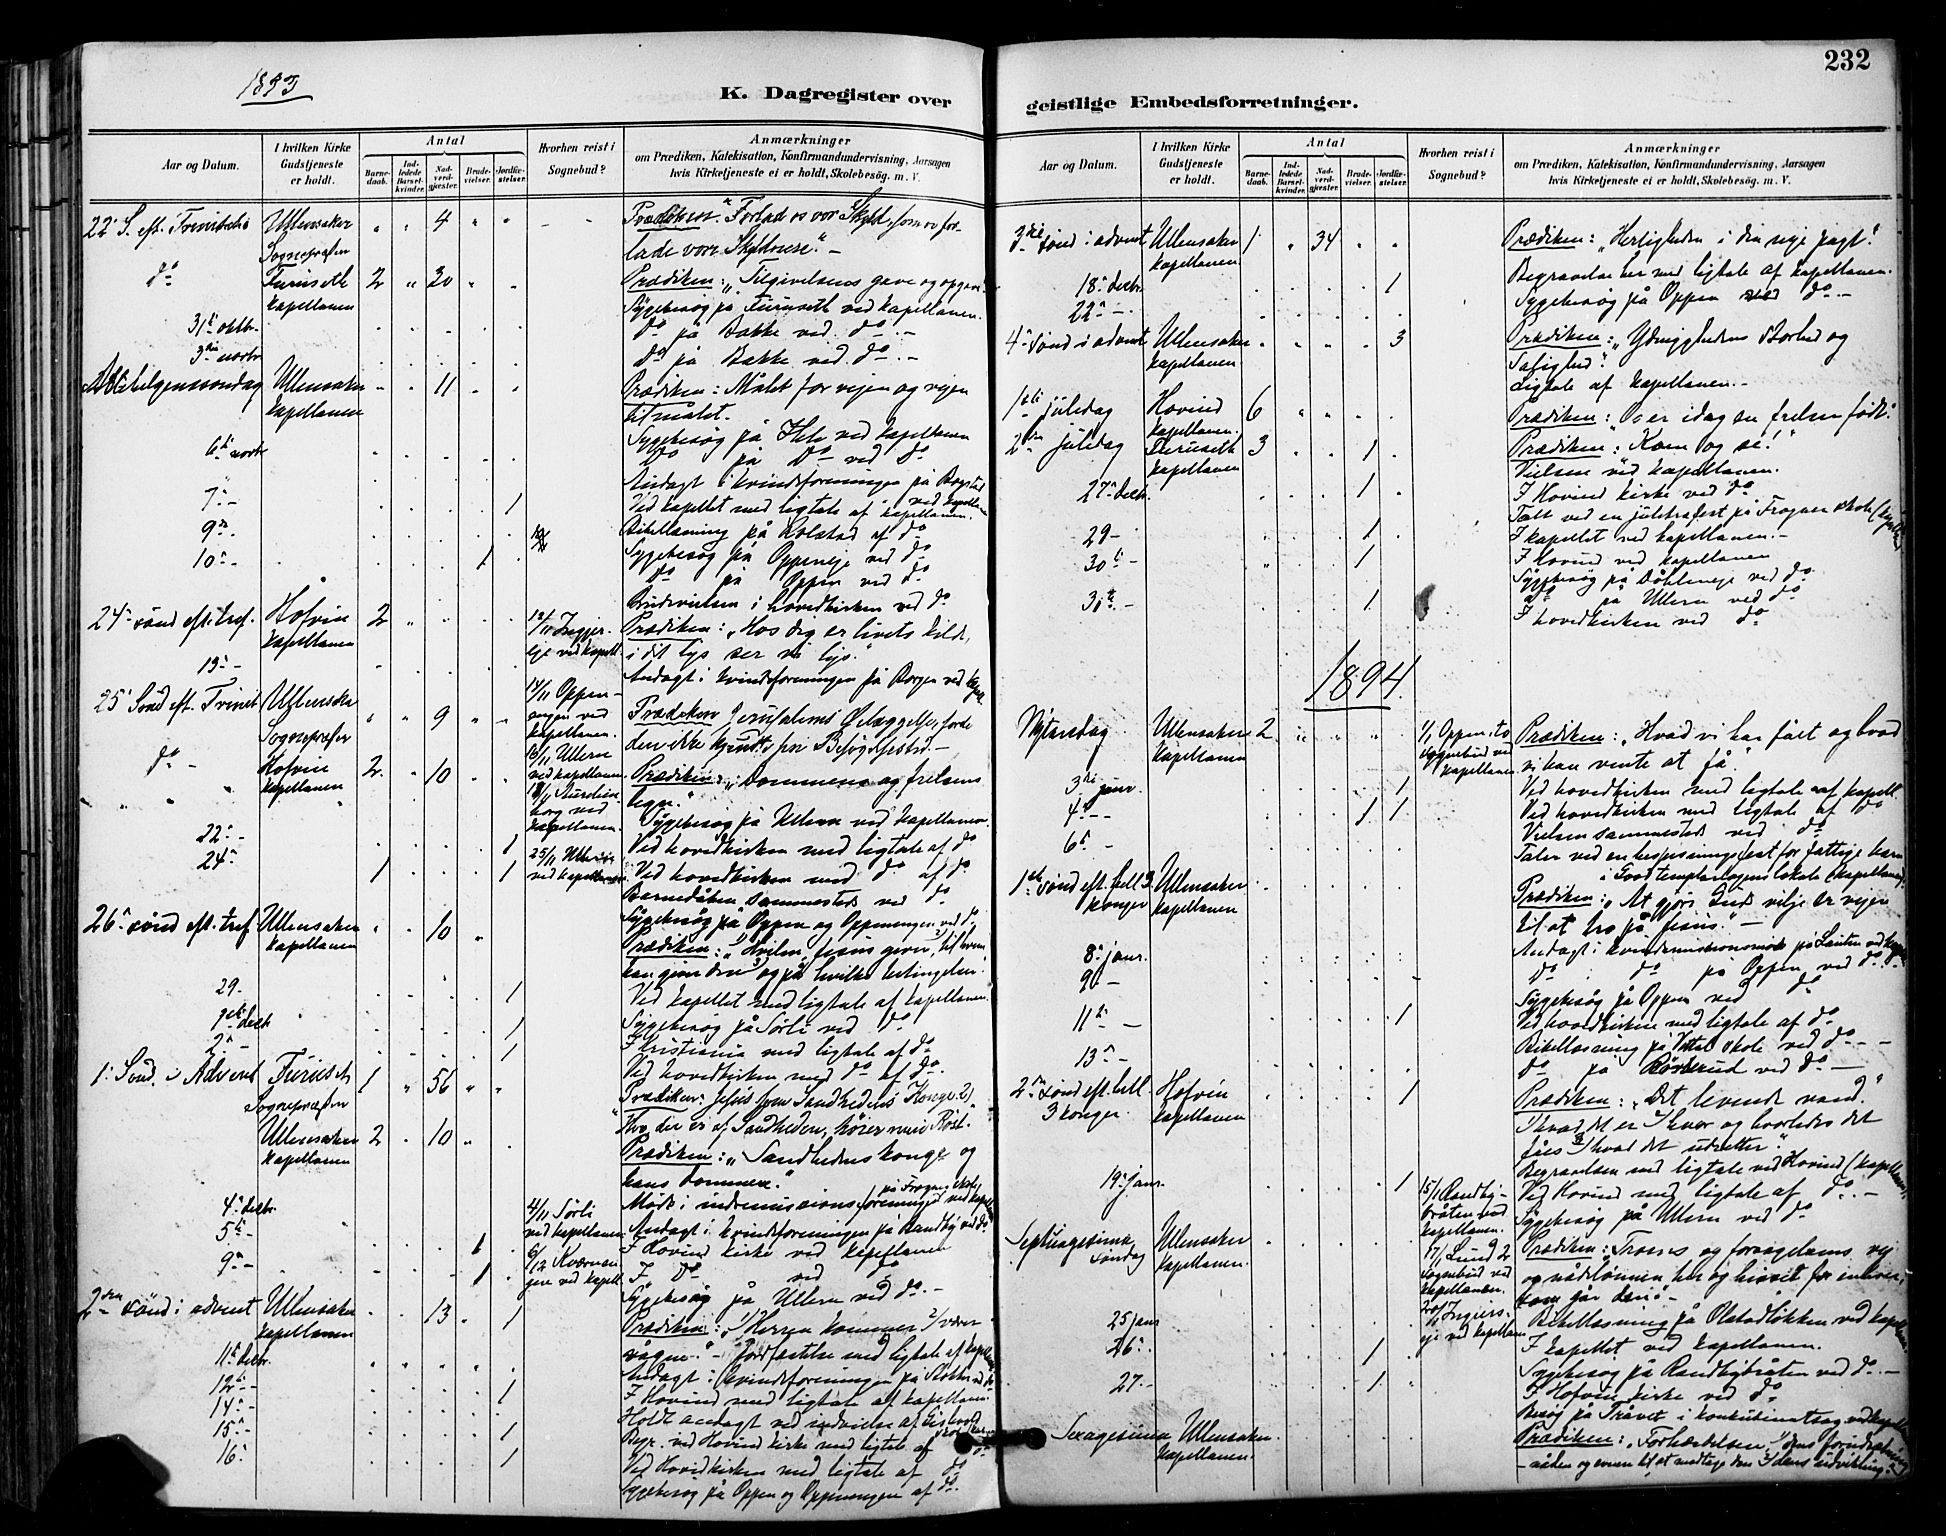 1893
K. Dagregister over
Antal
Aar og Datum.
I hvilken Kirke Gudstjeneste er holdt.
Barnedaab.
Indledede Barselkvinder.
Nadverdgjester.
Brudevielser.
Jordfæstelser.
Hvorhen reist i Sognebud?
Anmærkninger
om Prædiken, Katekisation, Konfirmandundervisning, Aarsagen
hvis Kirketjeneste ei er holdt, Skolebesøg. m. V.
22. S. eft. Trinitatis Ullensaker 4 Prædiken: "Forlad os vor Skyld, som vi for-
Sognepræsten lade vore Skyldnere." -
do Furuseth 2 20 Prædiken: "Tilgivelsens gave og opgave."
kapellanen Sygebesøg på Furuseth ved kapellanen.
31te oktbr. do på Bakke ved do -
3die novbr. do på Bakke ved do -
Allehelgenssøndag Ullensaker 11 Prædiken: Målet for vejen og vejen
kapellanen til målet.
Sygebesøg på ved kapellanen
6te novbr. do på do ved do
Andagt i kvindeforeningen på Bogstad
7 - 1 Ved kapellet med ligtale af kapellanen.
9 - Bibellæsning på Rolstad af do
10 - 1 Sygebesøg på Oppeneje ved do
do på Oppen ved do
Brudevielsen i hovedkirken ved do
24. sønd. eft. tref. Hofvin 2 12/11 Prædiken: "Hos dig er livets kilde,
kapellanen eje ved kapell. i dit lys ser vi lys."
13 - Andagt i kvindeforeningen på Borgen ved kapell.
25. Sønd. eft. Trinit. Ullensaker 9 14/11 Oppen- Prædiken Jerusalems Ødelæggelse, fordi
Sognepræsten engen ved kapellanen. den ikke kjendte sin Besøgelsestid. -
do - Hofvin 2 10 16/11 Ullern ved kapellanen. Prædiken: "Dommens og frelsens
kapellanen 18/11 ved kapellanen. Sygebesøg på Ullern ved kapellanen.
22 - 1 Ved hovedkirken med ligtale af do
24 1 1 25/11 Ullern ved kapellanen Ved hovedkirken med do af do
Barnedåben sammesteds ved do
26. sønd. eft. tref. Ullensaker 10 Sygebesøg på Oppen og Oppenengen ved do
kapellanen Prædiken: "1) Hvilen, Jesus giver, 2) til hvem
kan give den 3) og på hvilke betingelser."
29 - 1 Ved kapellet med ligtale af kapellanen.
1ste decb. 1 Sygebesøg på Sørli ved do
2 - 1 I Kristiania med ligtale af do
Ved hovedkirken med do af do.
1. Sønd. i Advent Furuset 1 56 Prædiken: Jesus som Sandhedens Konge. 2)
Sognepræsten "Hver, der er af Sandheden, hører min Røst."
Ullensaker 2 10 Prædiken: "Sandhedens konge og
kapellanen hans dommere."
4. decbr. 4/11 Sørli ved kapellanen Møde i indremissionsforeningen på Frogner skole ved kapellanen
5 - Andagt i kvindeforeningen på Randby ved do
9 - 1 6/12 ved kapell. I Hovind kirke ved kapellanen
1 I do ved do
Sygebesøg på Ullern ved do. -
2den sønd. i advent Ullensaker 13 1 Prædiken: "1) Herren kommer 2) vær
kapellanen vågne." - Jordfæstelse med ligtale af kapellanen
11te decbr. Andagt i kvindeforeningen på ved do
12 - 1 I Hovind med ligtale af kapellanen
14 - Holdt andagt ved indvielse af
15 - 1 Begr. ved Hovind kirke med ligtale af do
16 - 1 Ved Hovedkirken med ligtale af do
Sygebesøg på Oppen og Oppenengen af do.
232
geistlige Embedsforretninger.
Antal
Aar og Datum.
I hvilken Kirke Gudstjeneste er holdt.
Barnedaab.
Indledede Barselkvinder.
Nadverdgjester.
Brudevielser.
Jordfæstelser.
Hvorhen reist i Sognebud?
Anmærkninger
om Prædiken, Katekisation, Konfirmandundervisning, Aarsagen
hvis Kirketjeneste ei er holdt, Skolebesøg. m. V.
3die sønd. i advent Ullensaker 1 34 Prædiken: "Herligheden i din ringe pagt."
kapellanen Begravelse her med ligtale af kapellanen.
18. decbr. 1 Sygebesøg på Oppen ved do -
22 -
4. sønd. i advent Ullensaker 3 Prædiken: "Ydmyghedens storhed og
kapellanen salighed."
Ligtale af kapellanen. -
1ste juledag Hovind 6 Prædiken: "Os er idag en frelser født."
kapellanen.
2den juledag Furuseth 3 1 Prædiken: "Kom og se!"
kapellanen Vielsen ved kapellanen.
27. decbr. 1 I Hovind kirke ved do
Talt ved en juletræfest på Frogner skole
29 - 1 I kapellet ved kapellanen. -
30te - 1 I Hovind ved kapellanen
Sygebesøg på ved do
31te - 1 do på Ullern ved do
I hovedkirken ved do
1894.
Nytårsdag Ullensaker 2 1/1 Oppen, to sognebud ved kapellanen Prædiken: "Hvad vi har fået og hvad
kapellanen vi kan vente at få."
3die janr. 1 Ved hovedkirken med ligtale af kapell.
4 - - 1 1 Ved hovedkirken med ligtale af do
Vielsen sammesteds ved do
6 - Taler ved en bespisningsfest for fattige børn
i Goodtemplarlogens lokale (kapellanen).
1ste sønd. eft. hell. 3 konger Ullensaker Prædiken: "At gjøre Guds vilje er vejen
kapellanen til at tro på Jesus." -
8. janr. Andagt i kvindemissionsmøde på
9 - do do på Oppen ved do -
Sygebesøg på Oppen ved do
11te - 1 Ved hovedkirken med ligtale af do
Bibellæsning på skole ved do -
13 - do på ved do -
2den sønd. eft. hell. 3 konger Hofvin 1 Prædiken: "Det levende vand."
kapellanen 1 hvad det er 2 hvor og hvorledes det
fåes 3 hvad det udretter."
Begravelsen med ligtale ved Hovind (kapellanen)
19. janr. 1 15/1 Randby- bråten ved kapellanen. Ved Hovind med ligtale af do -
Sygebesøg på Ullern ved do
Septuagesima søndag Ullensaker 17/1 Lund 2 sognebud ved kapellanen. Prædiken: Troens og forsagelsens vej
kapellanen. og nådelønnen her og hisset for enhver,
som går den." -
25 janr 20/1 eje ved kapellanen Bibellæsning på Olstadløkken ved kapellanen
26. 1 I kapellet ved kapellanen.
Sygebesøg på Randbybråten ved do -
27 - 1 I Hofvin kirke ved do
Besøg på i konkubinatsag ved kapellanen
Sexagesima Ullensaker Prædiken: "Forhærdelsen 1 dens forudsætning
kapellanen. - nåden og evnen til at modtage den 2 dens udvikling."